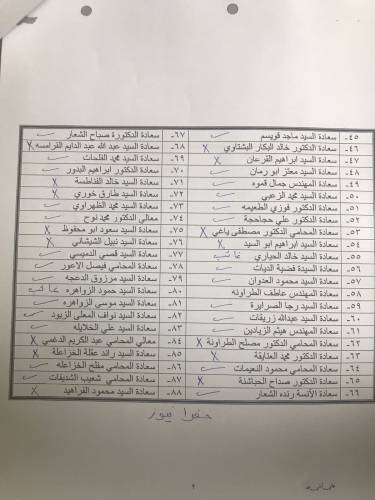 ٤٥- سعادة السيد ماجد قويسم
٤٦- سعادة الدكتور خالد البكار البشتاوي X
٤٧- سعادة السيد ابراهيم القرعان X
٤٨- سعادة السيد معتز ابو رمان
٤٩- سعادة المهندس جمال قموه
٥٠- سعادة السيد محمد الزعبي
٥١- سعادة الدكتور فوزي الطعيمه
٥٢- سعادة الدكتور علي حجاحجة
٥٣- سعادة المحامي الدكتور مصطفى ياغي X
٥٤- سعادة السيد ابراهيم ابو السيد X
٥٥- سعادة السيد خالد الحياري غائب
٥٦- سعادة السيدة فضية الديات
٥٧- سعادة السيد محمود العدوان
٥٨- سعادة المهندس عاطف الطراونه
٥٩- سعادة السيد رجا الصرايرة
٦٠- سعادة السيد عبدالله زريقات
٦١- سعادة المهندس هيثم الزيادين
٦٢- سعادة المحامي الدكتور مصلح الطراونة X
٦٣- سعادة الدكتور محمد العتايقة X
٦٤- سعادة المحامي محمود النعيمات
٦٥- سعادة الدكتور صداح الحباشنة X
٦٦- سعادة الآنسة رنده الشعار
٦٧- سعادة الدكتورة صباح الشعار
٦٨- سعادة السيد عبد الله عبد الدايم القرامسه X
٦٩- سعادة السيد محمد الفلحات
٧٠- سعادة الدكتور ابراهيم البدور
٧١- سعادة السيد خالد الفناطسة X
٧٢- سعادة السيد طارق خوري X
٧٣- سعادة السيد محمد الظهراوي
٧٤- معالي الدكتور محمد نوح
٧٥- سعادة السيد سعود ابو محفوظ X
٧٦- سعادة السيد نبيل الشيشاني X
٧٧- سعادة السيد قصي الدميسي
٧٨- سعادة المحامي فيصل الاعور
٧٩- سعادة السيد مرزوق الدعجه
٨٠- سعادة السيد حمود الزواهره غائب
٨١- سعادة السيد موسى الزواهره
٨٢- سعادة السيد نواف المعلى الزيود
٨٣- سعادة السيد علي الخلايله
٨٤- معالي المحامي عبد الكريم الدغمي X
٨٥- سعادة السيد رائد عقلة الخزاعلة X
٨٦- سعادة المحامي مفلح الخزاعله
٨٧- سعادة المحامي شعيب الشديفات
٨٨- سعادة السيد محمود الفراهيد X
حفرا نيوز
٢